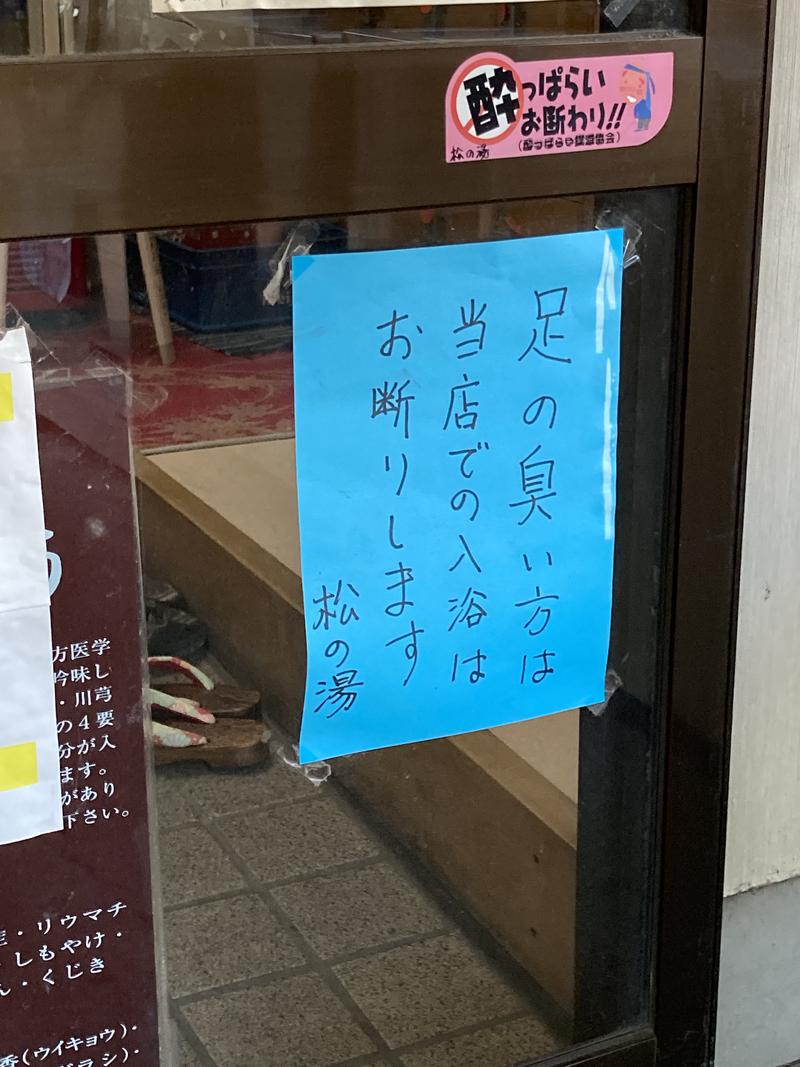 酔っぱらい
お断わり!!
松の湯
足の臭い方は
当店での入浴は
お断りします
松の湯
方医学
吟味し
・川芎
の4要
分が入
ます。
があり
下さい。
・リウマチ
しもやけ・
ん・くじき
香(ウイキョウ)・